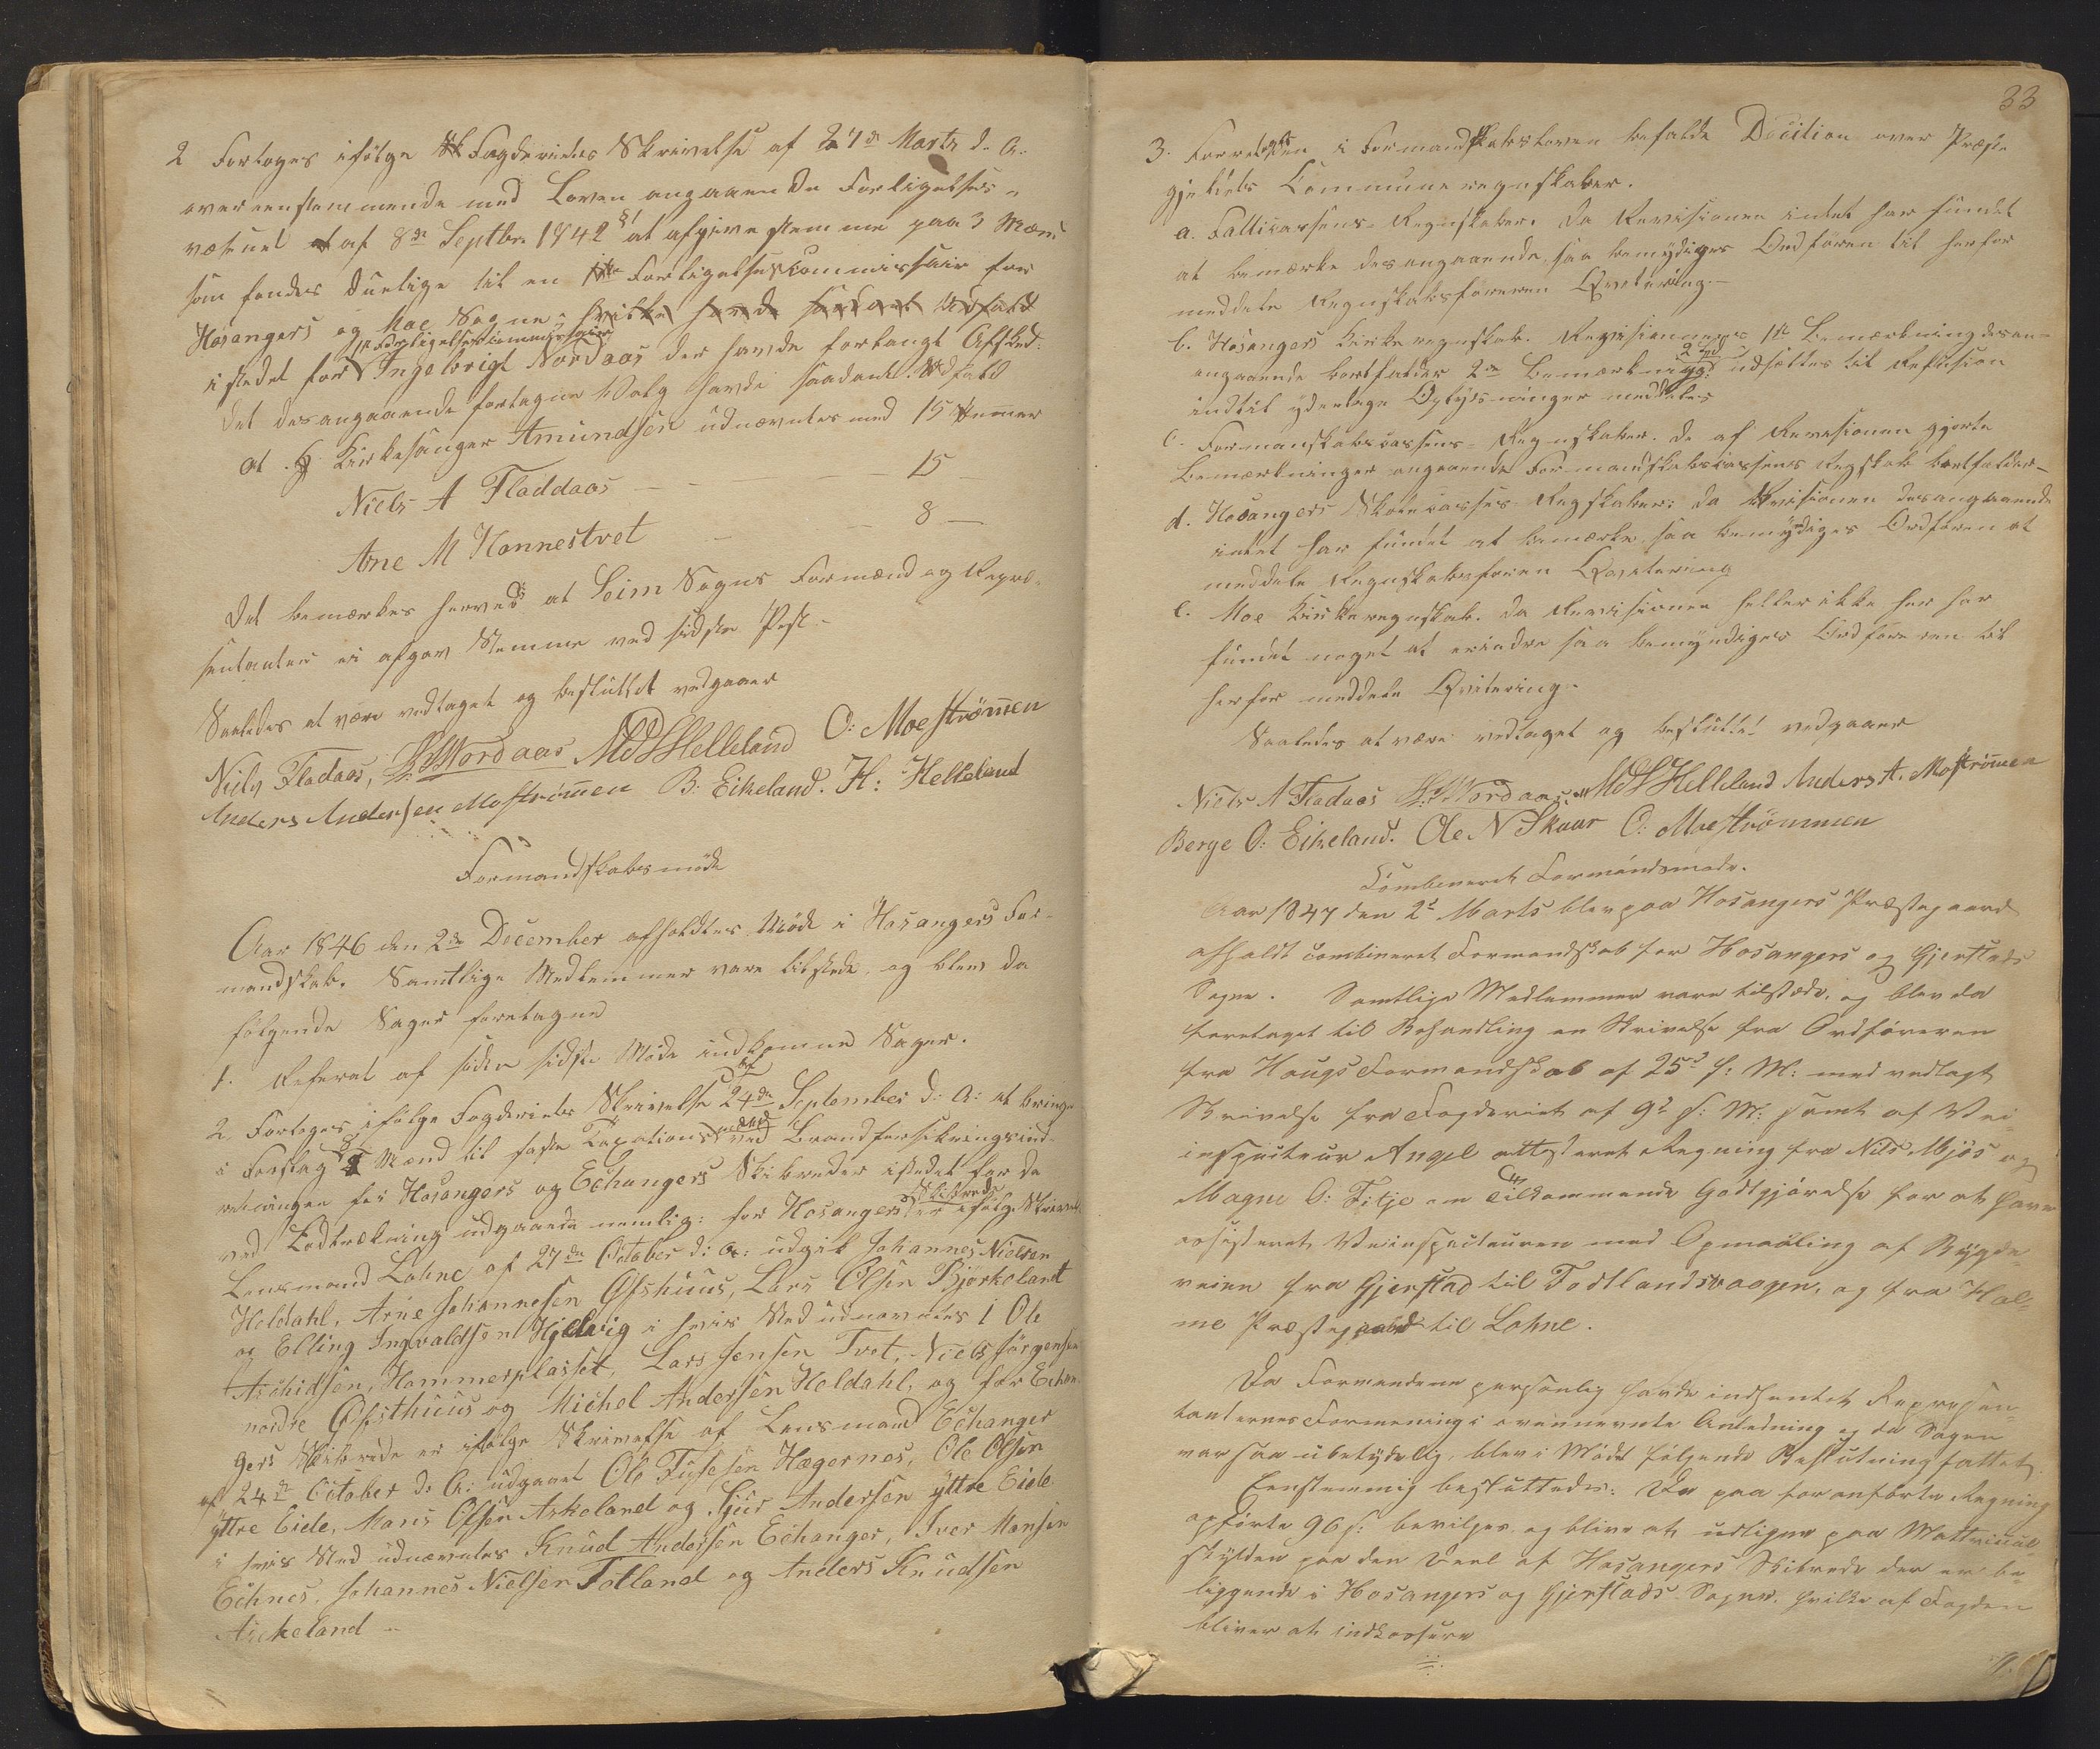 2 Fortoges ifölge Fogderiets Skrivelse af 27de Marts d. A.
overeenstemmende med Loven angaaende Forligelses-
væsenet af 8de Septbr. 1842 §1 at afgive stemme paa 3 Mænd
som fandtes duelige til en Forligelseskommissair for
Hosangers og Moe Sogne, hvilke havde saadant Udfald
istedet for Forligelseskommissair Ingebrigt Nordaas der havde forlangt Afsked.
Det desangaaende foretagne Valg havde saadant Udfald
at Kirkesanger Amundsen udnævntes med 15 Stemmer
Niels A Fladdaas — 15
Arne M Hannestvet — 8 —
Det bemærkes herved at Seim Sogns Formænd og Repræ-
sentanter ei afgav Stemme ved sidste Post.
Saaledes at være vedtaget og besluttet vedgaaer
Niels Fladaas, Nordaas M Helleland O: Moeströmen
Anders Andersen Moströmmen B. Eikeland. H: Helleland
Formandskabsmöde
Aar 1846 den 2de December afholdtes Möde i Hosangers For-
mandskab. Samtlige Medlemmer vare tilstede, og blev da
fölgende Sager foretagne
1. Referat af siden sidste Möde indkomne Sager.
2. Fortoges ifölge Fogderiets Skrivelse af 24de September d. A: at bringe
i Forslag 8 Mænd til faste Taxationsmænd ved Brandforsikringsind-
retningen for Hosangers og Echangers Skibreder istedet for de
ved Lodtrækning udgaaende nemlig: for Hosangers Skibrede er ifölge Skrivelse
Lensmand Lohne af 27de October d: A: udgik Johannes Nielsen
Holdahl, Arne Johannesen Ofsthuus, Lars Olsen Bjørkeland
og Elling Ingvaldsen Hjelvig i hvis Sted udnævntes 1 Ole
Aschidsen, Hammerplasset, Lars Jensen Tvet, Niels Jörgensen
nordre Ofsthuus og Michel Andersen Holdahl, og for Echan-
gers Skibrede er ifölge Skrivelse af Lensmand Echanger
af 24de October d. A: udgaaet Ole Hægernes, Ole Olsen
yttre Eide, Mons Olsen Askeland og Sjur Andersen yttre Eide
i hvis Sted udnævntes Knud Andersen Echanger, Iver Monsen
Echnes, Johannes Nielsen Totland og Anders Knudsen
Ascheland —
33
3. Foretoges den i Formandskabsloven befalede Decition over Præste
gjeldets Communeregnskaber.
a. Fattikassens Regnskaber. Da Revisionen intet har fundet
at bemærke desangaaende, saa bemyndiges Ordföreren til herfor
meddele Regnskabsföreren Qvittering.—
b. Hosangers Kirkeregnskab. Revisionens 1ste Bemærkning desan-
angaaende bortfalder 2den Bemærkning udsættes til Decition
indtil yderlige Oplysninger meddeles
c. Formanskabskassens Regnskaber. De af Revisionen gjorte
Bemærkninger angaaende Formandskabskassens Regskab bortfalder—
d. Hosangers Skolekasses Regskaber: Da Revisionen desangaaende
intet har fundet at bemærke, saa bemyndiges Ordföreren at
meddele Regnskabsföreren Qvittering
e. Moe Kirkeregnskab. Da Revisionen heller ikke her har
fundet noget at erindre saa bemyndiges Ordföreren til
herfor meddele Qvittering.
Saaledes at være vedtaget og besluttet vedgaaer
Niels A Fladaas Nordaas. M Helleland Anders A. Moströmen
Berge O: Eikeland. Ole N Skaar O: Moeströmmen
Combineret Formandsmöde.
Aar 1847 den 2d Marts blev paa Hosangers Præstegaard
afholdt combineret Formandskab for Hosangers og Gjerstads
Sogne. Samtlige Medlemmer vare tilstæde, og blev da
foretaget til Behandling en Skrivelse fra Ordföreren
fra Hougs Formandskab af 25d f: M: med vedlagt
Skrivelse fra Fogderiet af 9d f: M: samt af Vei-
inspecteur Angel attesteret Regning fra Nils Mjös og
Magne O: Fitje om Tilkommende Godtgjörelse for at have
assisteret Veinspecteuren med Opmaaling af Bygde-
veien fra Gjerstad til Fodtlandsvaagen, og fra Hal-
me Præstegaard til Lohne.
Da Formændene personlig havde indhentet Repræsen-
tanternes Formening i ovennevnte Anledning og da Sagen
var saa ubetydelig, blev i Mödet fölgende Beslutning fattet
Eenstemmig besluttedes: De paa foranförte Regning
opförte 96 s: bevilges og blive at udligne paa Matricul-
skylden paa den Deel af Hosangers Skibrede der er be-
liggende i Hosangers og Gjerstads Sogne, hvilke af Fogden
bliver at indkassere